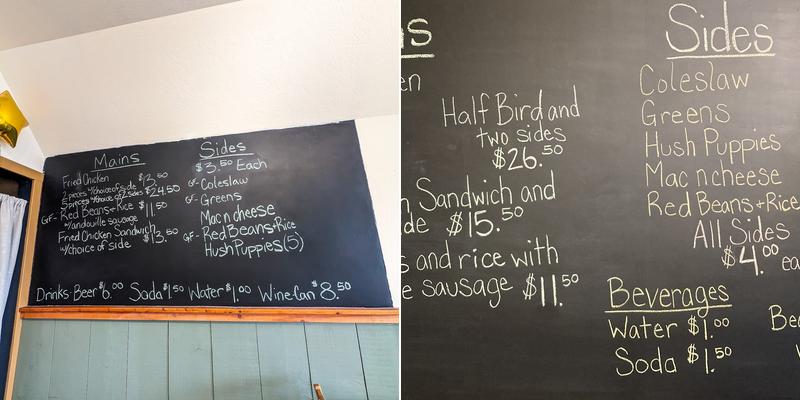 Mains
Fried Chicken $12.50
2 pieces w/choice of side
5 pieces w/choice of 2 sides $24.50
GF- Red Beans+Rice $11.50
w/andouille sausage
Fried Chicken Sandwich $13.50
w/choice of side
Sides
$3.50 Each
GF- Coleslaw
GF- Greens
Mac n cheese
GF- Red Beans+Rice
Hush Puppies (5)
Drinks: Beer $6.00 Soda $1.50 Water $1.00 Wine Can $8.50
ns
en
Half Bird and
two sides
$26.50
Sandwich and
de $15.50
s and rice with
e sausage $11.50
Sides
Coleslaw
Greens
Hush Puppies
Mac n cheese
Red Beans+Rice
All Sides
$4.00 ea
Beverages
Water $1.00
Soda $1.50
Be